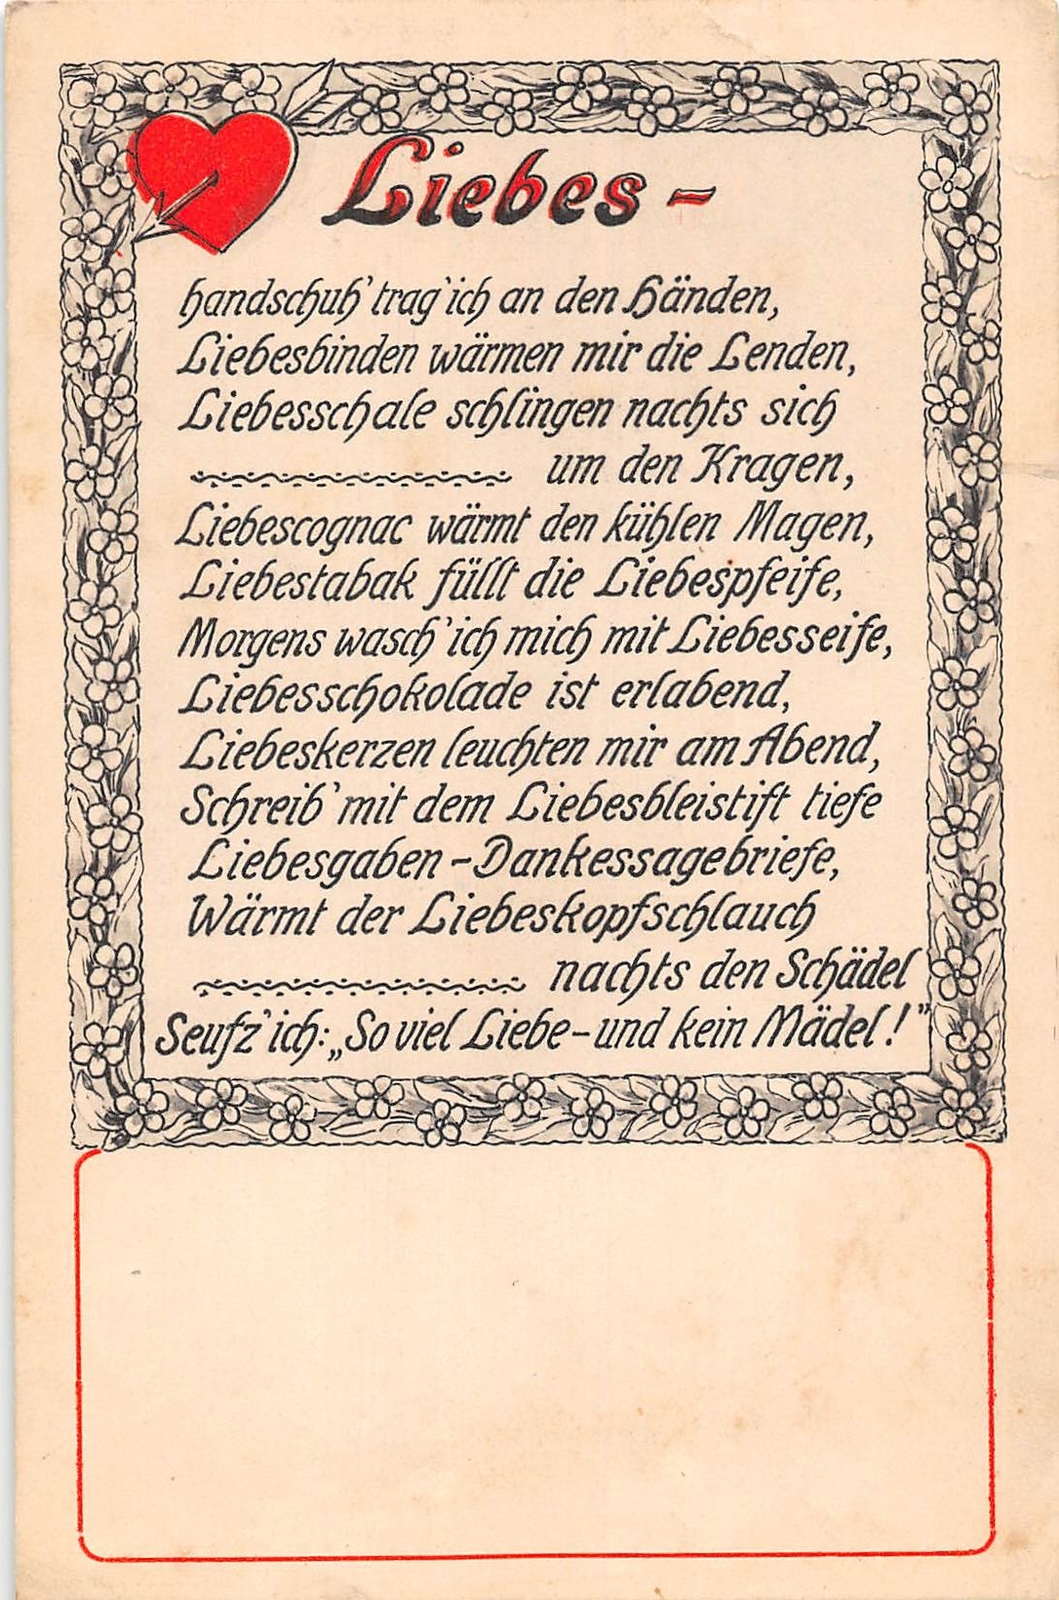 Liebes-
handschuh' trag' ich an den Händen,
Liebesbinden wärmen mir die Lenden,
Liebesschale schlingen nachts sich
um den Kragen,
Liebescognac wärmt den kühlen Magen,
Liebestabak füllt die Liebespfeife,
Morgens wasch' ich mich mit Liebesseife,
Liebesschokolade ist erlabend,
Liebeskerzen leuchten mir am Abend,
Schreib' mit dem Liebesbleistift tiefe
Liebesgaben-Dankessagebriefe,
Wärmt der Liebeskopfschlauch
nachts den Schädel
Seufz' ich: „So viel Liebe-und kein Mädel!"